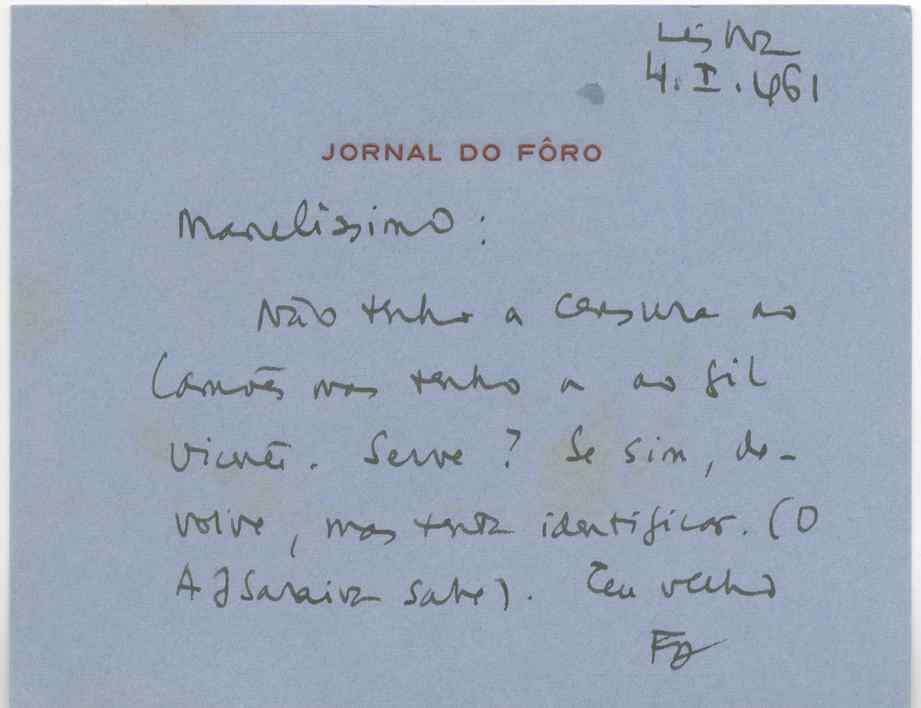 Lisboa
4. I. 961
JORNAL DO FÔRO
Manelíssimo:
Não tenho a censura ao
Camões mas tenho a ao Gil
Vicente. Serve? Se sim, de-
volve, mas tenta identificar. (O
A J Saraiva sabe). Teu velho